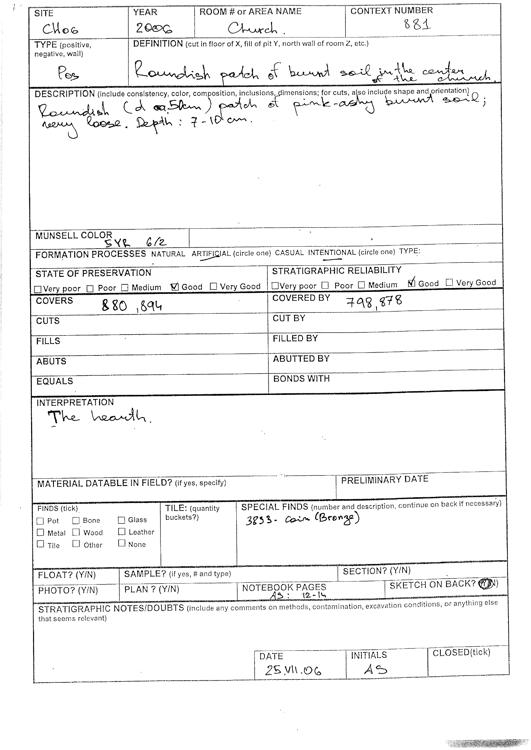 SITE YEAR ROOM # or AREA NAME CONTEXT NUMBER
CH06 2006 Church. 881
TYPE (positive, negative, wall) DEFINITION (cut in floor of X, fill of pit Y, north wall of room Z, etc.)
Pos Roundish patch of burnt soil in the center
of the church.
DESCRIPTION (include consistency, color, composition, inclusions, dimensions; for cuts, also include shape and orientation)
Roundish (d ca 51cm) patch of pink-ashy burnt soil;
very loose. Depth: 7-10 cm.
MUNSELL COLOR
5YR 6/2
FORMATION PROCESSES NATURAL ARTIFICIAL (circle one) CASUAL INTENTIONAL (circle one) TYPE:
STATE OF PRESERVATION STRATIGRAPHIC RELIABILITY
☐Very poor ☐ Poor ☐ Medium ☑ Good ☐ Very Good ☐Very poor ☐ Poor ☐ Medium ☑ Good ☐ Very Good
COVERS 880, 894 COVERED BY 798, 878
CUTS CUT BY
FILLS FILLED BY
ABUTS ABUTTED BY
EQUALS BONDS WITH
INTERPRETATION
The hearth.
MATERIAL DATABLE IN FIELD? (if yes, specify) PRELIMINARY DATE
FINDS (tick) TILE: (quantity buckets?) SPECIAL FINDS (number and description, continue on back if necessary)
☐ Pot ☐ Bone ☐ Glass 3853 - coin (Bronze)
☐ Metal ☐ Wood ☐ Leather
☐ Tile ☐ Other ☐ None
FLOAT? (Y/N) SAMPLE? (if yes, # and type) SECTION? (Y/N)
PHOTO? (Y/N) PLAN ? (Y/N) NOTEBOOK PAGES SKETCH ON BACK? (Y/N)
AS: 12-14
STRATIGRAPHIC NOTES/DOUBTS (include any comments on methods, contamination, excavation conditions, or anything else
that seems relevant)
DATE INITIALS CLOSED(tick)
25.VII.06 AS